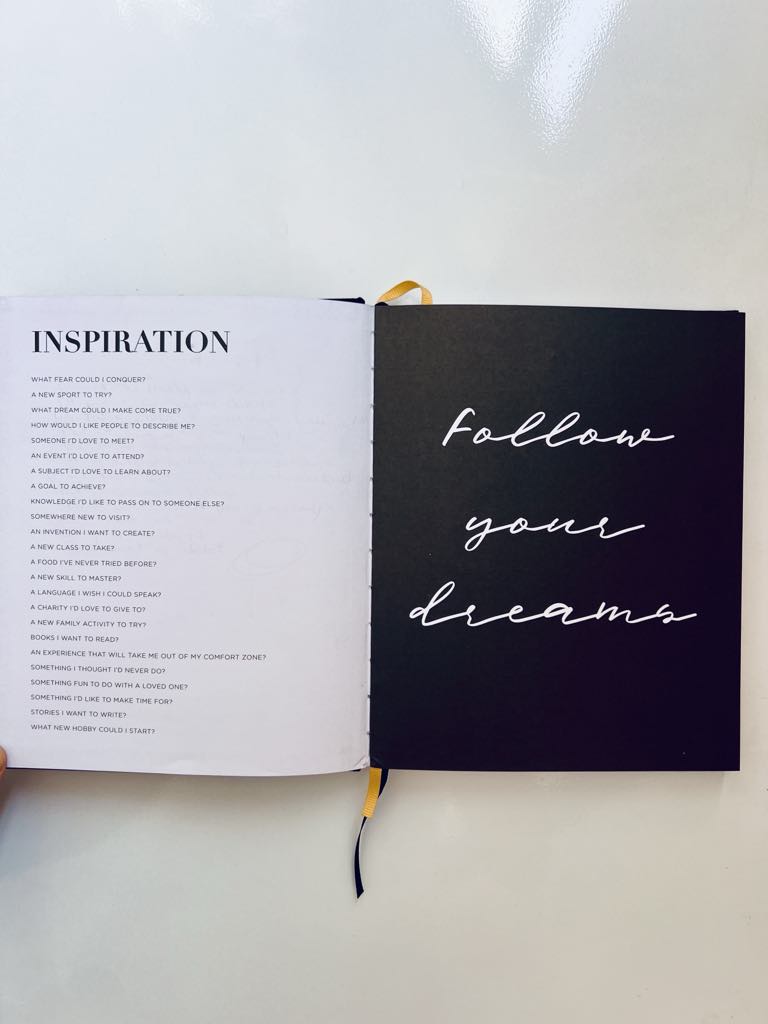 INSPIRATION
WHAT FEAR COULD I CONQUER?
A NEW SPORT TO TRY?
WHAT DREAM COULD I MAKE COME TRUE?
HOW WOULD I LIKE PEOPLE TO DESCRIBE ME?
SOMEONE I'D LOVE TO MEET?
AN EVENT I'D LOVE TO ATTEND?
A SUBJECT I'D LOVE TO LEARN ABOUT?
A GOAL TO ACHIEVE?
KNOWLEDGE I'D LIKE TO PASS ON TO SOMEONE ELSE?
SOMEWHERE NEW TO VISIT?
AN INVENTION I WANT TO CREATE?
A NEW CLASS TO TAKE?
A FOOD I'VE NEVER TRIED BEFORE?
A NEW SKILL TO MASTER?
A LANGUAGE I WISH I COULD SPEAK?
A CHARITY I'D LOVE TO GIVE TO?
A NEW FAMILY ACTIVITY TO TRY?
BOOKS I WANT TO READ?
AN EXPERIENCE THAT WILL TAKE ME OUT OF MY COMFORT ZONE?
SOMETHING I THOUGHT I'D NEVER DO?
SOMETHING FUN TO DO WITH A LOVED ONE?
SOMETHING I'D LIKE TO MAKE TIME FOR?
STORIES I WANT TO WRITE?
WHAT NEW HOBBY COULD I START?
Follow
your
dreams